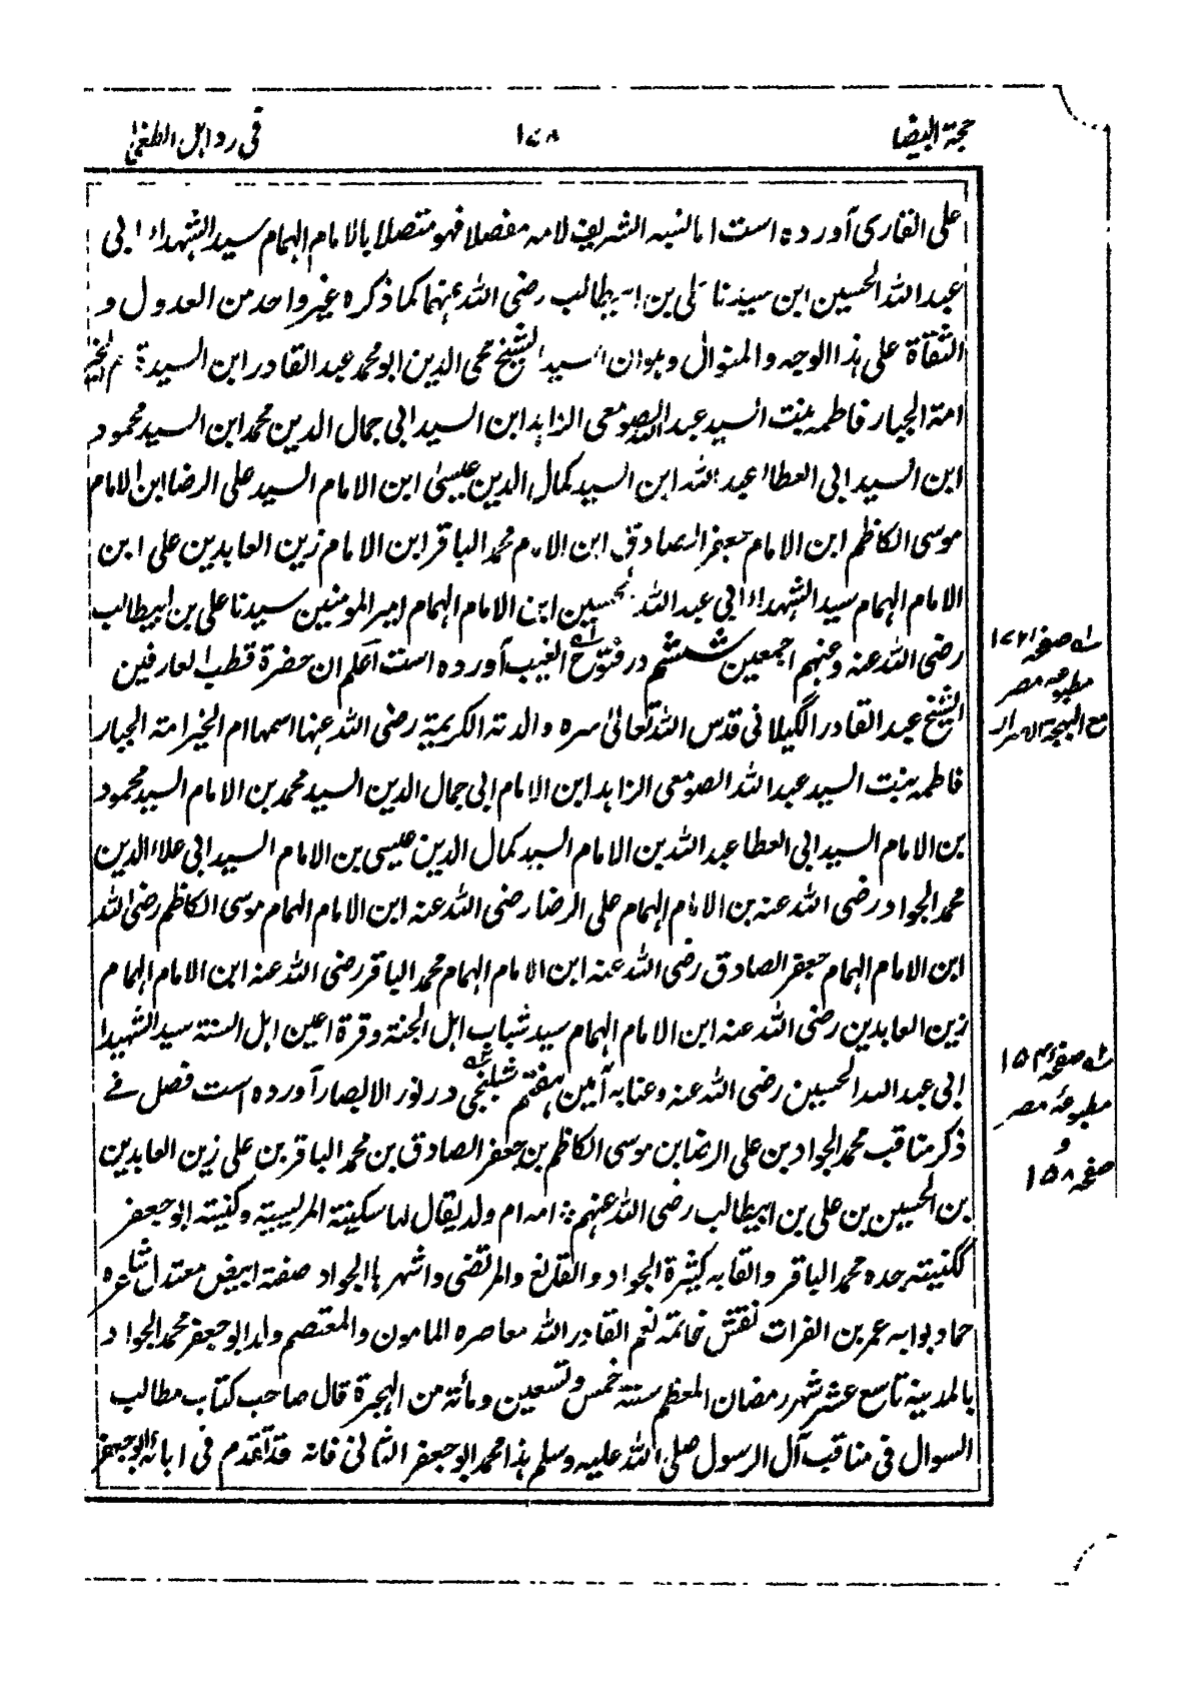 حجة البيضا
١٧٨
فى رد اہل الطغىٰ
على القارى آورده است اما نسبه الشريف لامه مفصلا فهو متصلا بالامام الہمام سيد الشہداء ابى
عبد الله الحسين ابن سيدنا على بن ابيطالب رضى الله عنہما كما ذكره غير واحد من العدول و
الثقاة على ہذا الوجه والمنوال وہو ان السيد الشيخ محى الدين ابو محمد عبد القادر ابن السيدة ام الخير
امة الجبار فاطمه بنت السيد عبد الله الصومعى الزاہد ابن السيد ابى جمال الدين محمد ابن السيد محمود
ابن السيد ابى العطا عبد الله ابن السيد كمال الدين عيسىٰ ابن الامام السيد على الرضا ابن الامام
موسى الكاظم ابن الامام جعفر الصادق ابن الامام محمد الباقر ابن الامام زين العابدين على ابن
الامام الہمام سيد الشہداء ابى عبد الله الحسين ابن الامام الہمام امير المومنين سيدنا على بن ابيطالب
رضى الله عنه وعنہم اجمعين ششم در فتوح الغيب آورده است اعلم ان حضرة قطب العارفين
الشيخ عبد القادر الگيلانى قدس الله تعالىٰ سره والدته الكريمة رضى الله عنہا اسمہا ام الخير امة الجبار
فاطمه بنت السيد عبد الله الصومعى الزاہد ابن الامام ابى جمال الدين السيد محمد بن الامام السيد محمود
بن الامام السيد ابى العطا عبد الله بن الامام السيد كمال الدين عيسى بن الامام السيد ابى علاء الدين
محمد الجواد رضى الله عنه بن الامام الہمام على الرضا رضى الله عنه ابن الامام الہمام موسى الكاظم رضى الله
ابن الامام الہمام جعفر الصادق رضى الله عنه ابن الامام الہمام محمد الباقر رضى الله عنه ابن الامام الہمام
زين العابدين رضى الله عنه ابن الامام الہمام سيد شباب اہل الجنة وقرة اعين اہل السنة سيد الشہدا
ابى عبد الله الحسين رضى الله عنه وعنا به آمين ہفتم شبلنجى در نور الابصار آورده است فصل فے
ذكر مناقب محمد الجواد بن على الرضا بن موسى الكاظم بن جعفر الصادق بن محمد الباقر بن على زين العابدين
بن الحسين بن على بن ابيطالب رضى الله عنہم امه ام ولد يقال لہا سكينة المريسية وكنيته ابو جعفر
ككنيته جده محمد الباقر والقابه كثيرة الجواد والقانع والمرتضى واشہرہا الجواد صفته ابيض معتدل شاعره
حماد بوابه عمر بن الفرات نقش خاتمه نعم القادر الله معاصره المامون والمعتصم ولد ابو جعفر محمد الجواد
بالمدينة تاسع عشر شہر رمضان المعظم سنة خمس وتسعين ومأئة من الہجرة قال صاحب كتاب مطالب
السوال فى مناقب آل الرسول صلى الله عليه وسلم ہذا محمد ابو جعفر الثانى فانه قد تقدم فى ابائه ابو جعفر
له صفحه ١٧٢
مطبوعه مصر
مع البہجة الاسرار
له صفحه ١٥٣
مطبوعۂ مصر
و
صفحه ١٥٨